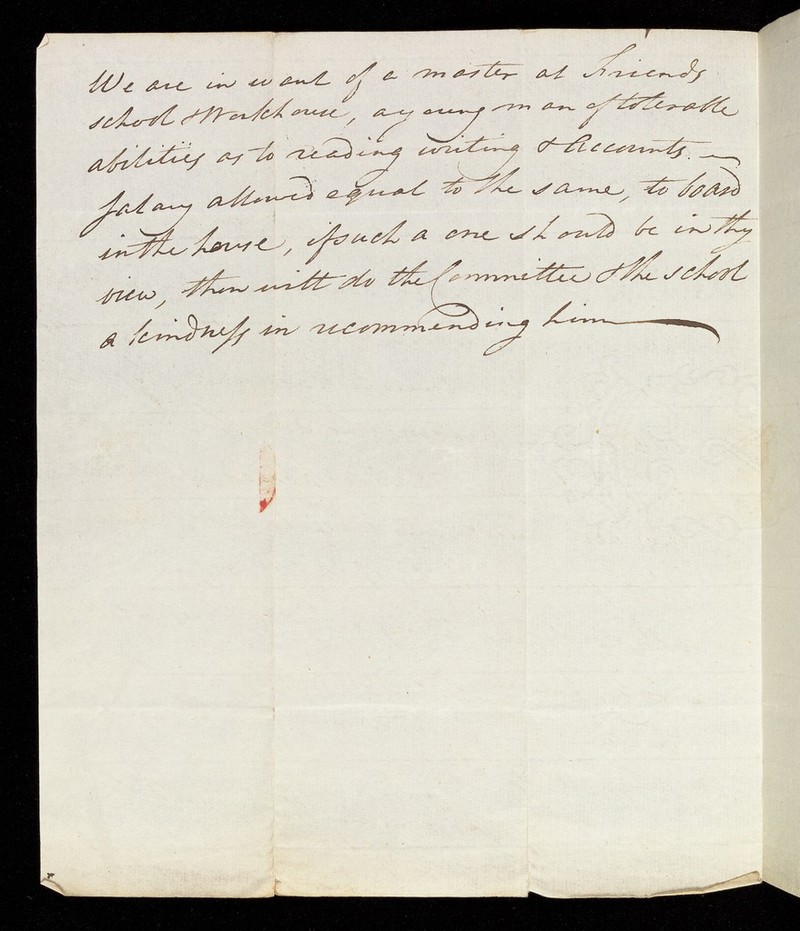 We are in want of a master at Friends
school & Workhouse, a young man of tolerable
abilities as to reading writing & Accounts. —
Salary allowed equal to the same, to board
in the house, if such a one should be in thy
view, thou wilt do the Committee & the school
a kindness in recommending him —